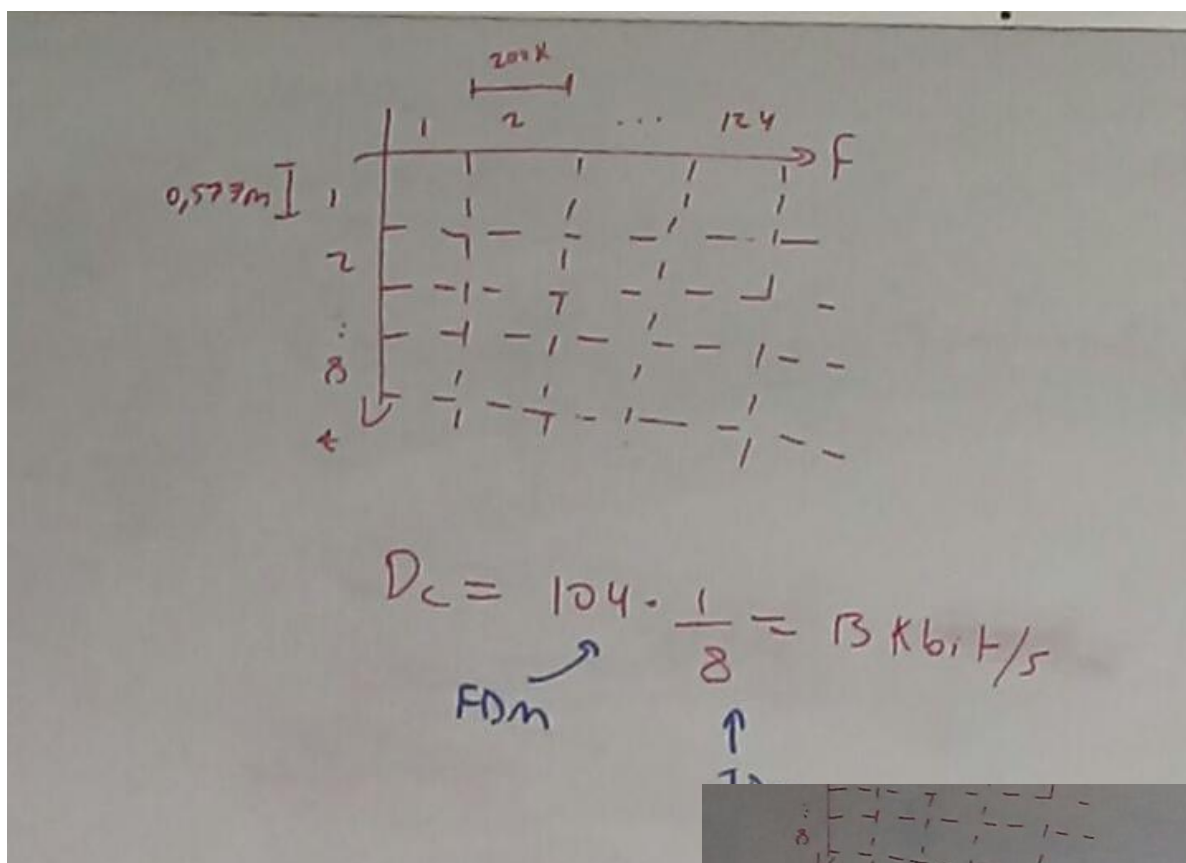 200K
1 2 ... 124 F
0,577m 1
2
:
8
t
Dc = 104 · 1/8 = 13 Kbit/s
FDM
:
8